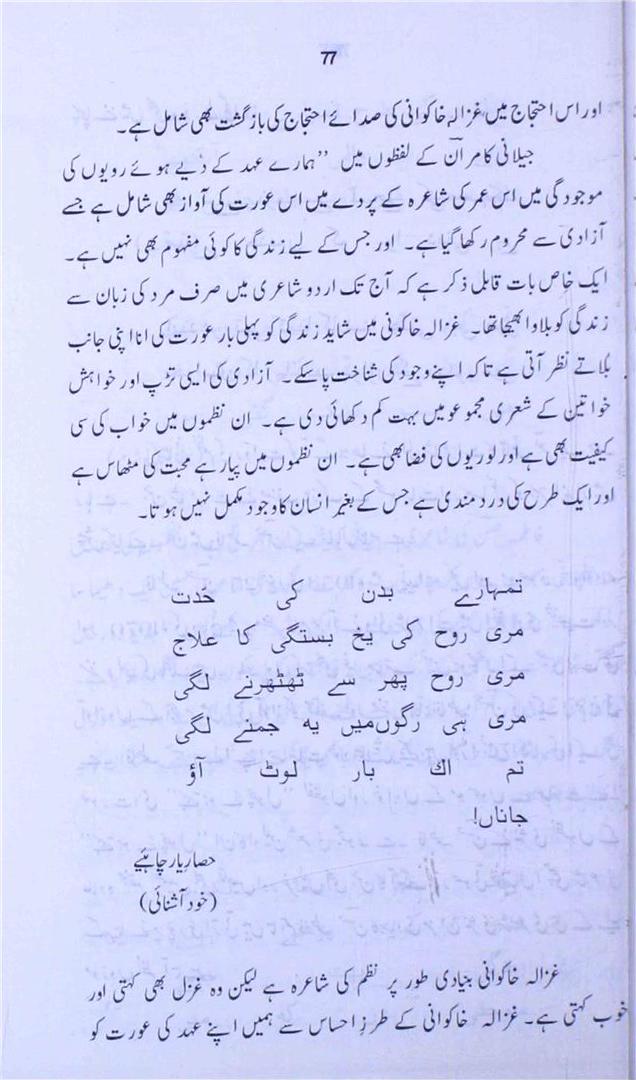 77
اور اس احتجاج میں غزالہ خاکوانی کی صدائے احتجاج کی بازگشت بھی شامل ہے۔
جیلانی کامران کے لفظوں میں ”ہمارے عہد کے دیے ہوئے رویوں کی
موجودگی میں اس عمر کی شاعرہ کے پردے میں اس عورت کی آواز بھی شامل ہے جسے
آزادی سے محروم رکھا گیا ہے۔ اور جس کے لیے زندگی کا کوئی مفہوم بھی نہیں ہے۔
ایک خاص بات قابل ذکر ہے کہ آج تک اردو شاعری میں صرف مرد کی زبان سے
زندگی کو بلاوا بھیجا تھا۔ غزالہ خاکونی میں شاید زندگی کو پہلی بار عورت کی انا اپنی جانب
بلاتے نظر آتی ہے تاکہ اپنے وجود کی شناخت پاسکے۔ آزادی کی ایسی تڑپ اور خواہش
خواتین کے شعری مجموعو میں بہت کم دکھائی دی ہے۔ ان نظموں میں خواب کی سی
کیفیت بھی ہے اور لوریوں کی فضا بھی ہے۔ ان نظموں میں پیار ہے محبت کی مٹھاس ہے
اور ایک طرح کی دردمندی ہے جس کے بغیر انسان کا وجود مکمل نہیں ہوتا۔
تمہارے بدن کی حدت
مری روح کی یخ بستگی کا علاج
مری روح پھر سے ٹھٹھرنے لگی
مری ہی رگوں میں یہ جمنے لگی
تم اک بار لوٹ آؤ
جاناں!
حصارِ یار چاہئے
(خود آشنائی)
غزالہ خاکوانی بنیادی طور پر نظم کی شاعرہ ہے لیکن وہ غزل بھی کہتی اور
خوب کہتی ہے۔ غزالہ خاکوانی کے طرزِ احساس سے ہمیں اپنے عہد کی عورت کو